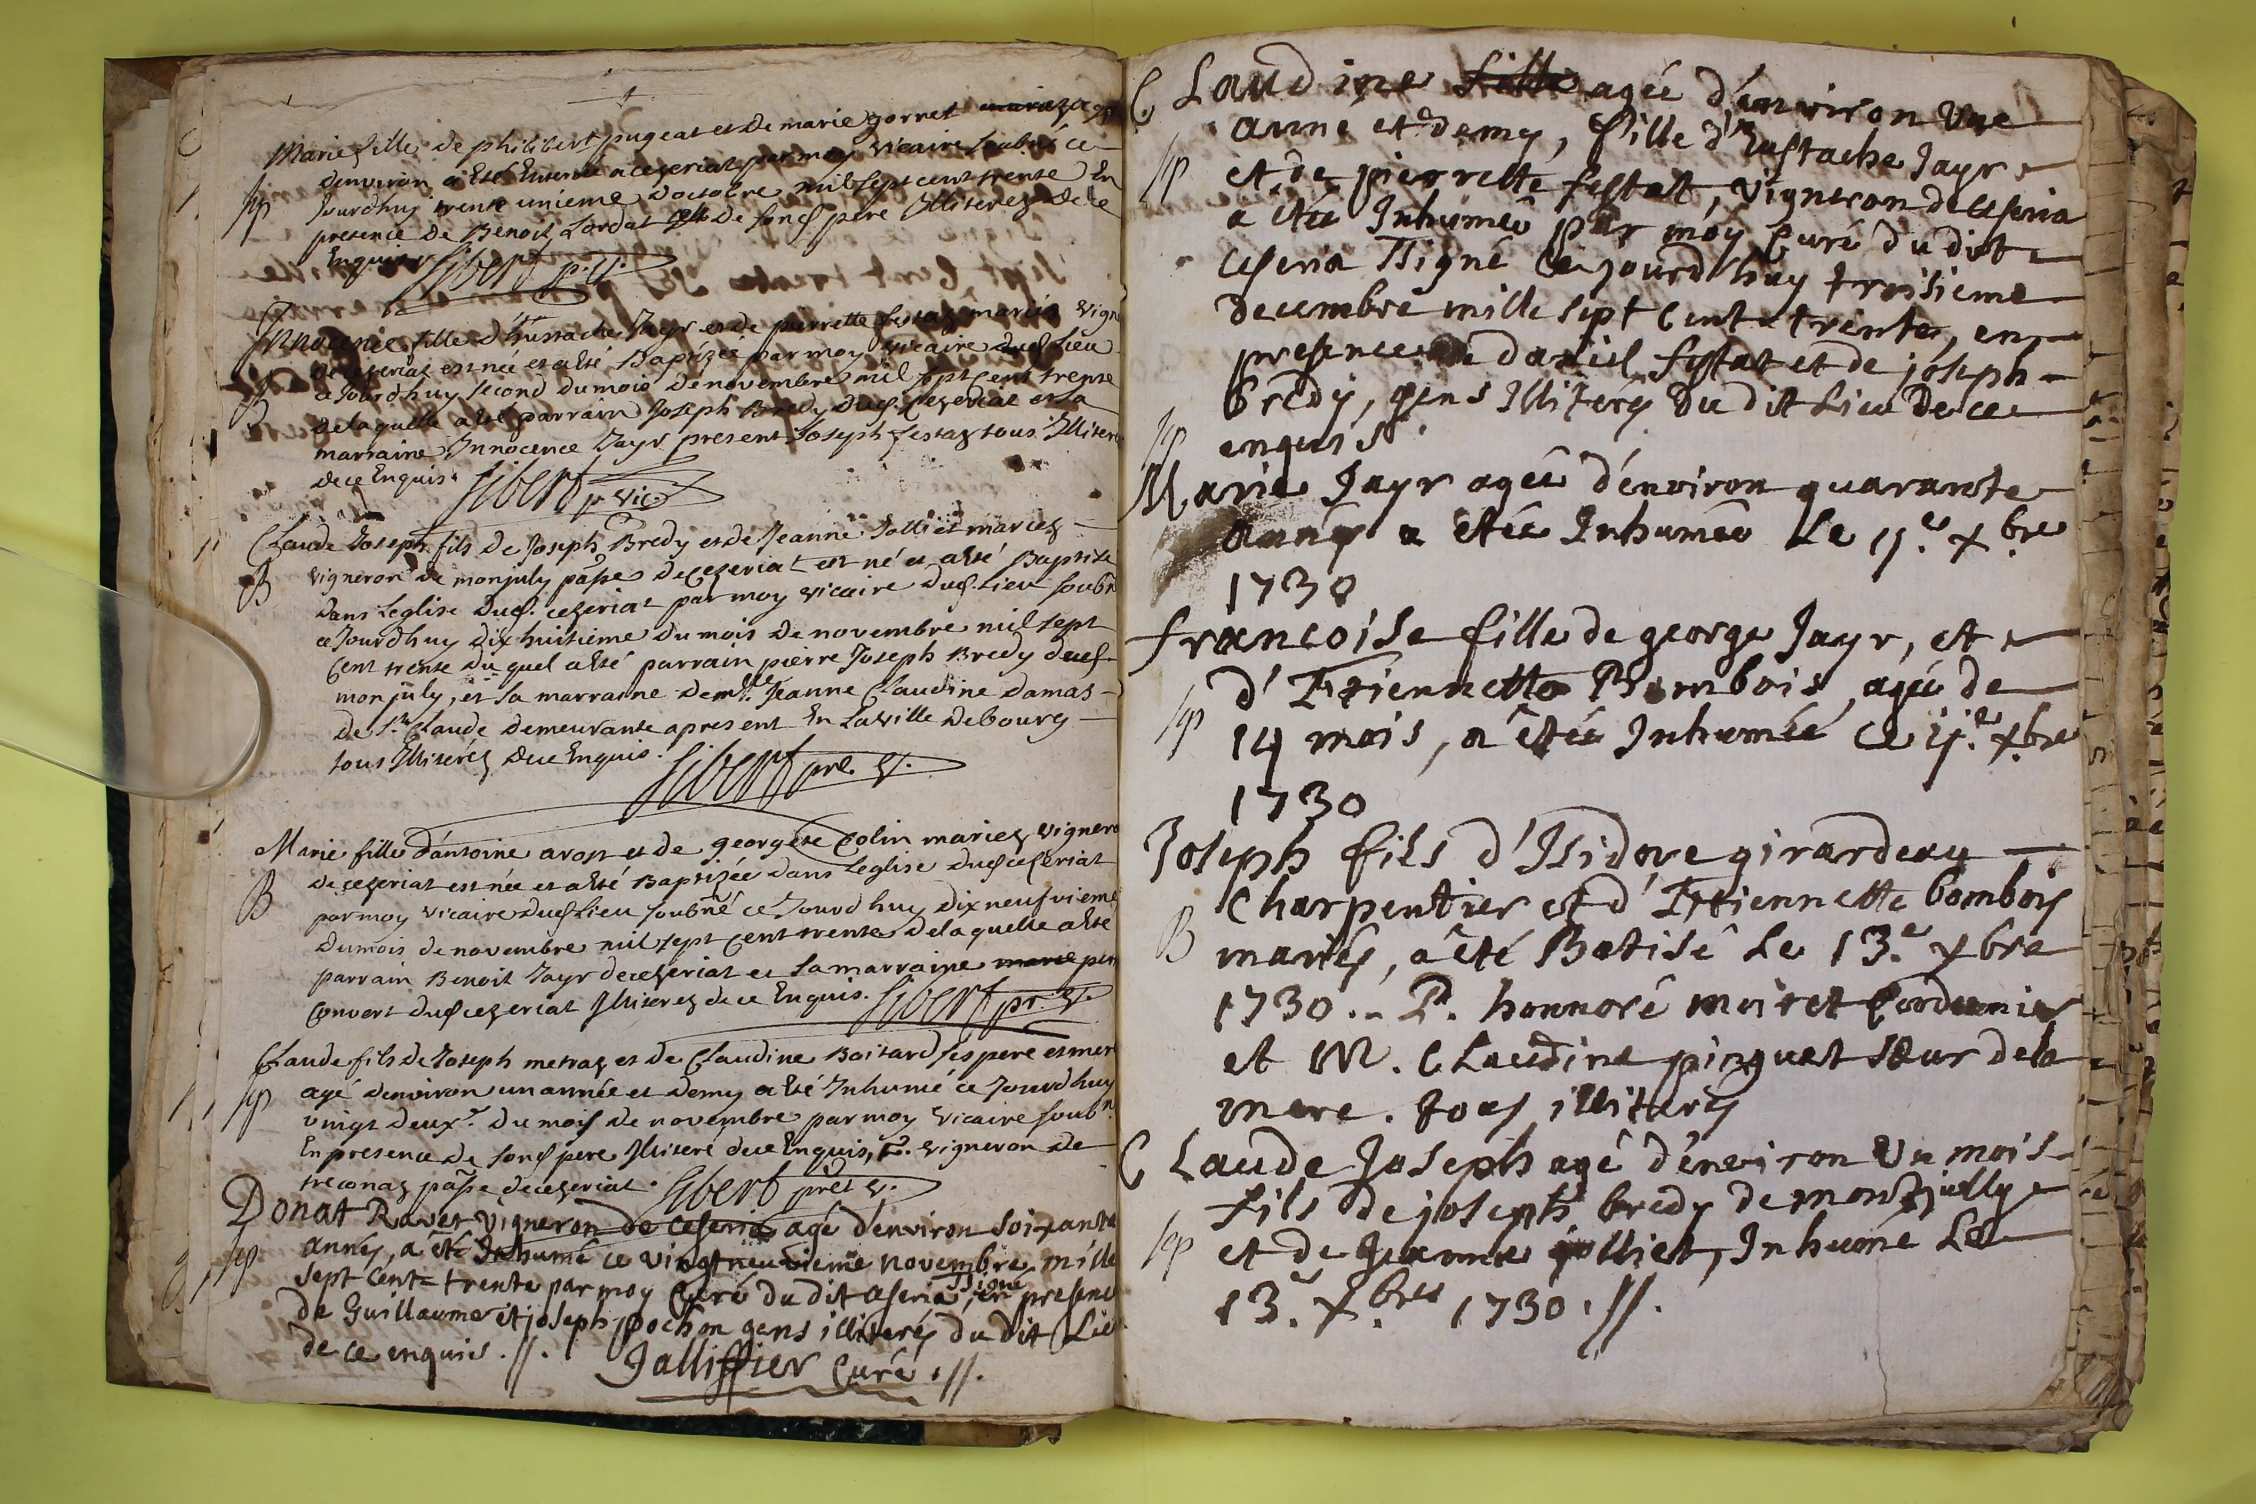 Marie fille de philibert pugeat et de marie gornet
denviron a Esté Enterré a cezeriat par moy vicaire soubné ce
sp Jourdhuy trente unieme doctobre mil sept cent trente En
presence de Benoit Lordat de son pere Illiterez de ce
Enquis Gibert p. v.
Innocence fille d'hustache Jayr et de pierrette festaz mariez vign
de cezeriat est née et a esté Baptizée par moy vicaire dud lieu
B ce Jourdhuy second du mois de novembre mil sept cent trente
de laquelle a esté parrain Joseph Bredy dud cezeriat et la
marraine Innocence Jayr present Joseph festaz tous Illiterez
de ce Enquis. Gibert p. vic.
Claude Joseph fils de Joseph Bredy et de Jeanne Jolliet mariez
B vigneron de monjuly pâsse de cezeriat est né et a esté Baptise
dans Leglise dud. cezeriat par moy vicaire dud. Lieu soubn
ce Jourdhuy dix huitieme du mois de novembre mil sept
Cent trente du quel a esté parrain pierre Joseph Bredy dud.
monjuly, et sa marraine demlle Jeanne Claudine damas
de st. Claude demeurante apresent En La ville de bourg
tous Illiteréz de ce Enquis. Gibert pre. v.
Marie fille d'antoine aron et de georgete Colin mariez vignero
de cezeriat est née et a esté Baptizée dans Leglise dud cezeriat
B par moy vicaire dud Lieu soubné ce Jourd huy dix neufvieme
du mois de novembre mil sept Cent trente de laquelle a esté
parrain Benoit Jayr de cezeriat et la marraine
Convert dud cezeriat Illiterez de ce Enquis. Gibert pr. v.
Claude fils de Joseph metraz et de Claudine Boitard ses pere et mer
sp agé denviron un année et demy a esté Inhumé ce Jourdhuy
vingt deux.e du mois de novembre par moy vicaire soubn.
En presence de son pere Illiteré de ce Enquis, vigneron de
treconaz pâsse de cezeriat. Gibert pret v.
Donat Ravet vigneron de ceseria agé d'environ soixante
sp annéz, a êté Inhumé ce vingt neuvieme novembre mille
sept Cent = trente par moy Curé du dit ceseria, ssigné en presenc
de Guillaume et joseph pochon gens illiteréz du dit Lieu
de ce enquis. //. Jalliffier Curé . //.
Claudine agée d'environ une
anne et demy, fille d'Eustache Jayr
sp et de pierrette festat, vigneron de ceseria
a êtée Inhumée par moy Curé du dit
ceseria ssigné ce jourd'huy troisieme
decembre mille sept Cent = trente, en
presence de daniel festat et de joseph
bredy, gens Illiterez du dit Lieu de ce
sp enquis.
Marie Jayr agée d'environ quarante
annéz a êtée Inhumée le 11.e xbre
1730
francoise fille de george Jayr, et
d'Etiennette Bombois, agée de
sp 14 mois, a êtée Inhumée ce 11.e xbre
1730
Joseph fils d'Isidore girardeau
Charpentier et d'Etiennette bombois
B mariéz, a êté Batisé le 13.e xbre
1730.. P. honnoré moiret Cordonnier
et M. Claudine pinguet sœur dela
mere. tous illiteréz
Claude Joseph agé d'environ un mois
fils de joseph bredy de montjully
sp et de jeanne jolliet, Inhumé Le
13.e xbre 1730 . //.